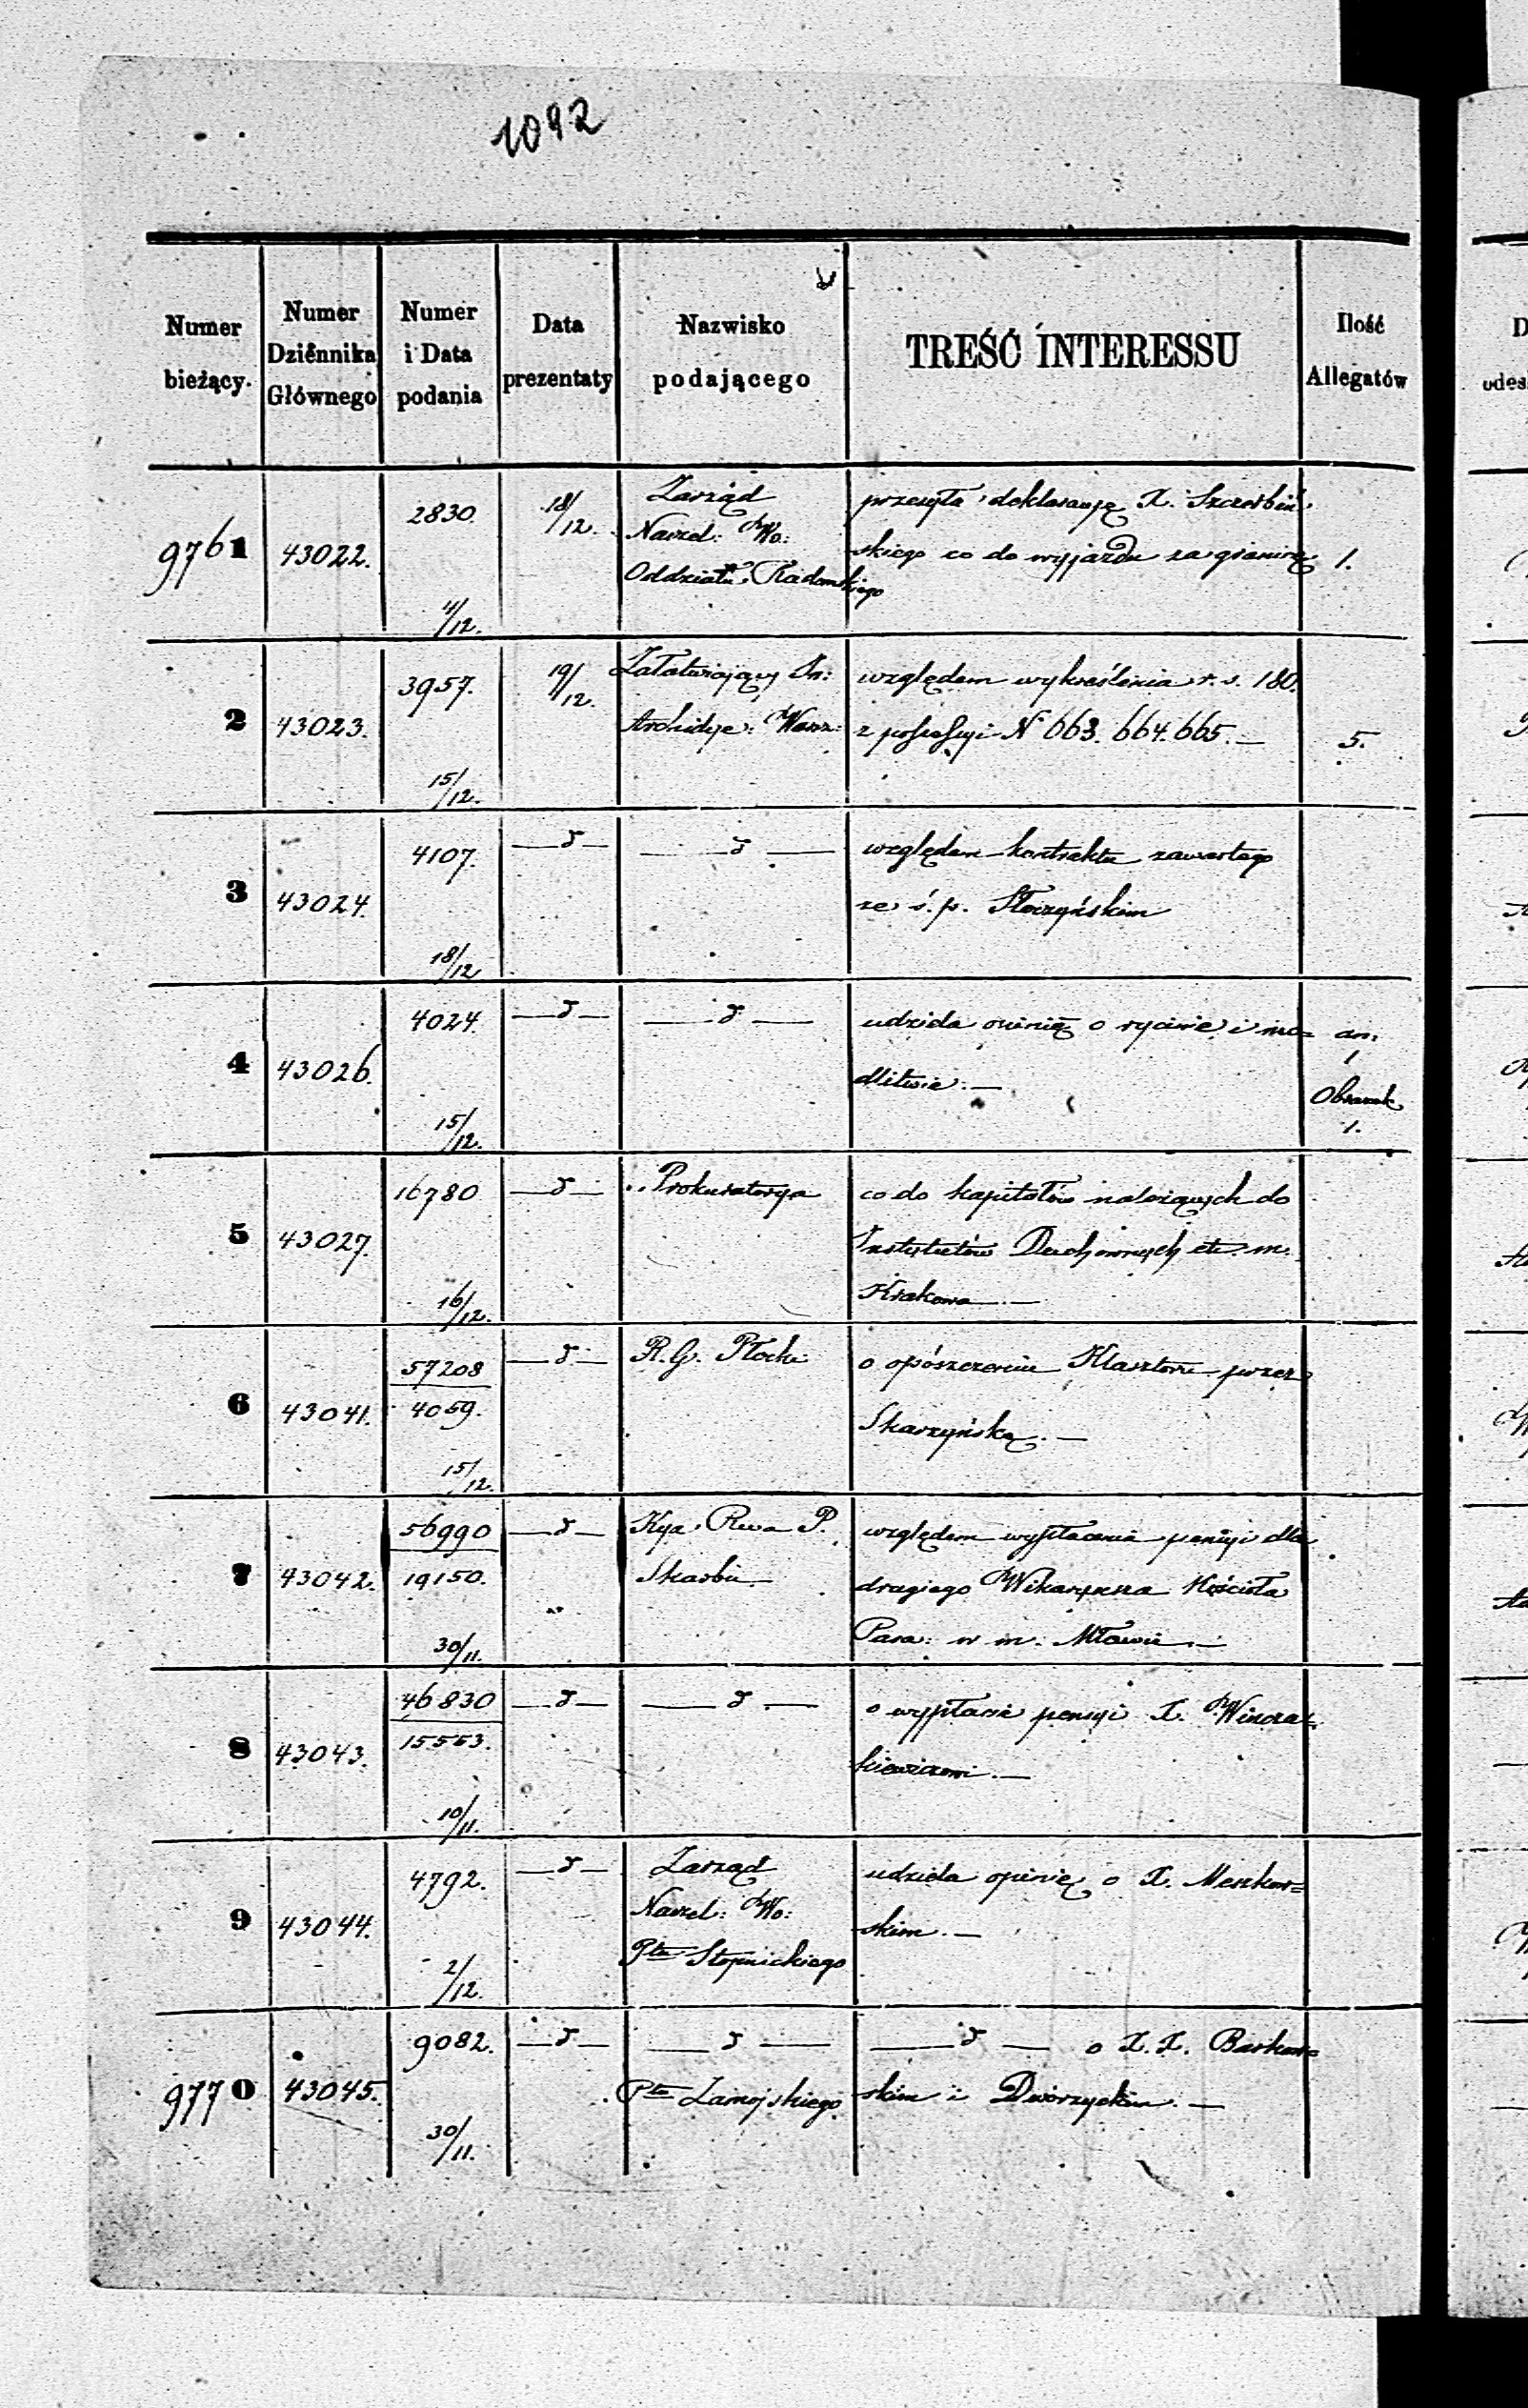 1092
Numer bieżący.
Numer Dziennika Głównego
Numer i Data podania
Data prezentaty
Nazwisko podającego
TREŚĆ INTERESSU
Ilość Allegatów
9761
43022.
2830.
4/12.
18/12.
Zarząd
Naczel: Wo:
Oddziału Radomskiego
przesyła deklaracyę X. Szczerbiń
skiego co do wyjazdu za granicę
1.
2
43023.
3957.
15/12.
19/12.
Załatwiający In:
Archidye: Warsz:
względem wykreślenia r. s. 180.
z possessyi N 663. 664. 665. —
5.
3
43024.
4107.
18/12
—d—
—d—
względem kontraktu zawartego
ze ś. p. Skarzyńskim
4
43026.
4024.
15/12.
—d—
—d—
udziela opinię o rycinie i mo=
dlitwie. —
an:
1
Obrazek
1.
5
43027.
16780
16/12.
—d—
Prokuratorya
co do kapitałów należących do
Instytutów Duchownych etc. m.
Krakowa. —
6
43041.
57208
4059.
15/12.
—d—
R. G. Płocki
o opószczeniu Klasztoru przez
Skarzyńską. —
7
43042.
56990
19150.
30/11.
—d—
Kya Rwa P.
Skarbu.
względem wypłacenia pensyi dla
drugiego Wikaryusza Kościoła
Para: w m. Mławie. —
8
43043.
46830
15553.
10/11.
—d—
—d—
o wypłacie pensyi X. Wincza=
kiewiczowi. —
9
43044.
4792.
2/12.
—d—
Zarząd
Naczel: Wo:
Ptu Stopnickiego
udziela opinię o X. Meszkow=
skim. —
9770
43045.
9082.
30/11.
—d—
—d—
Ptu Zamojskiego
—d— o X. X. Barkow=
skim i Dworzyckim. —